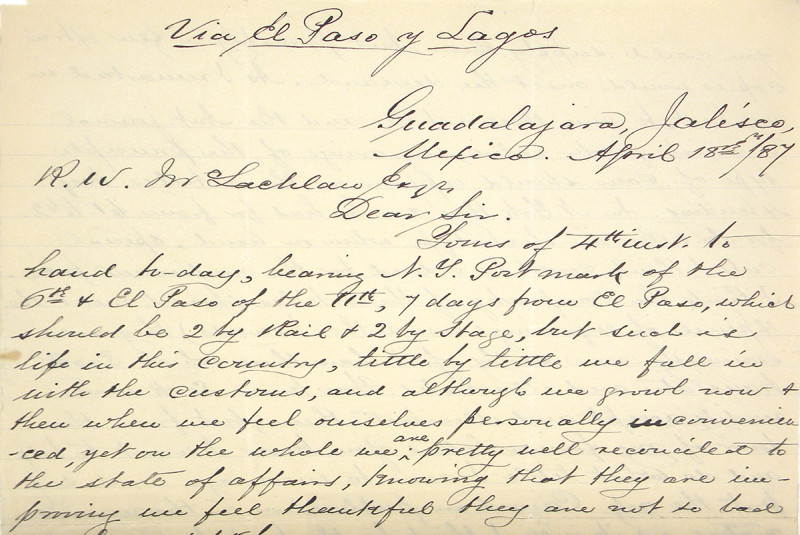 Via El Paso y Lagos
Guadalajara, Jalisco,
Mexico. April 18th/87
R. W. McLachlan Esqr,
Dear Sir.
Yours of 4th inst. to
hand to-day, bearing N. Y. Post mark of the
6th & El Paso of the 11th, 7 days from El Paso, which
should be 2 by Rail & 2 by Stage, but such is
life in this country, little by little we fall in
with the customs, and although we growl now &
then when we feel ourselves personally inconvenien
-ced, yet on the whole we are pretty well reconciled to
the state of affairs, knowing that they are im-
proving we feel thankful they are not so bad